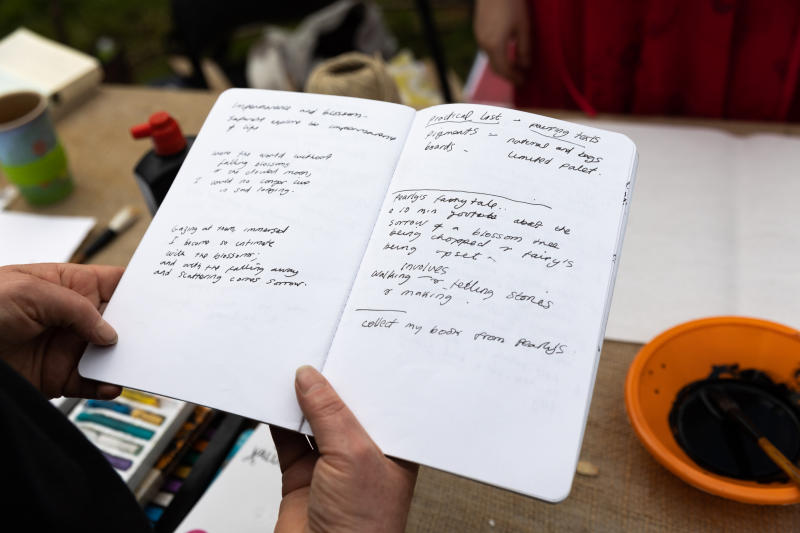 Impermanence and blossom.
explore the impermanence
of life
were the world without
falling blossoms
or the clouded moon,
I could no longer live
in sad longing.
Gazing at them immersed
I become so intimate
with the blossoms;
and with the falling away
and scattering comes sorrow.
Practical list - painting tests
pigments - natural and
boards - limited palet.
Pearlys fairy tale.
a 10 min youtube about the
sorrow of a blossom tree
being chopped & fairy's
being upset -
Involves
walking & telling stories
& making.
collect my book from Pearly's.